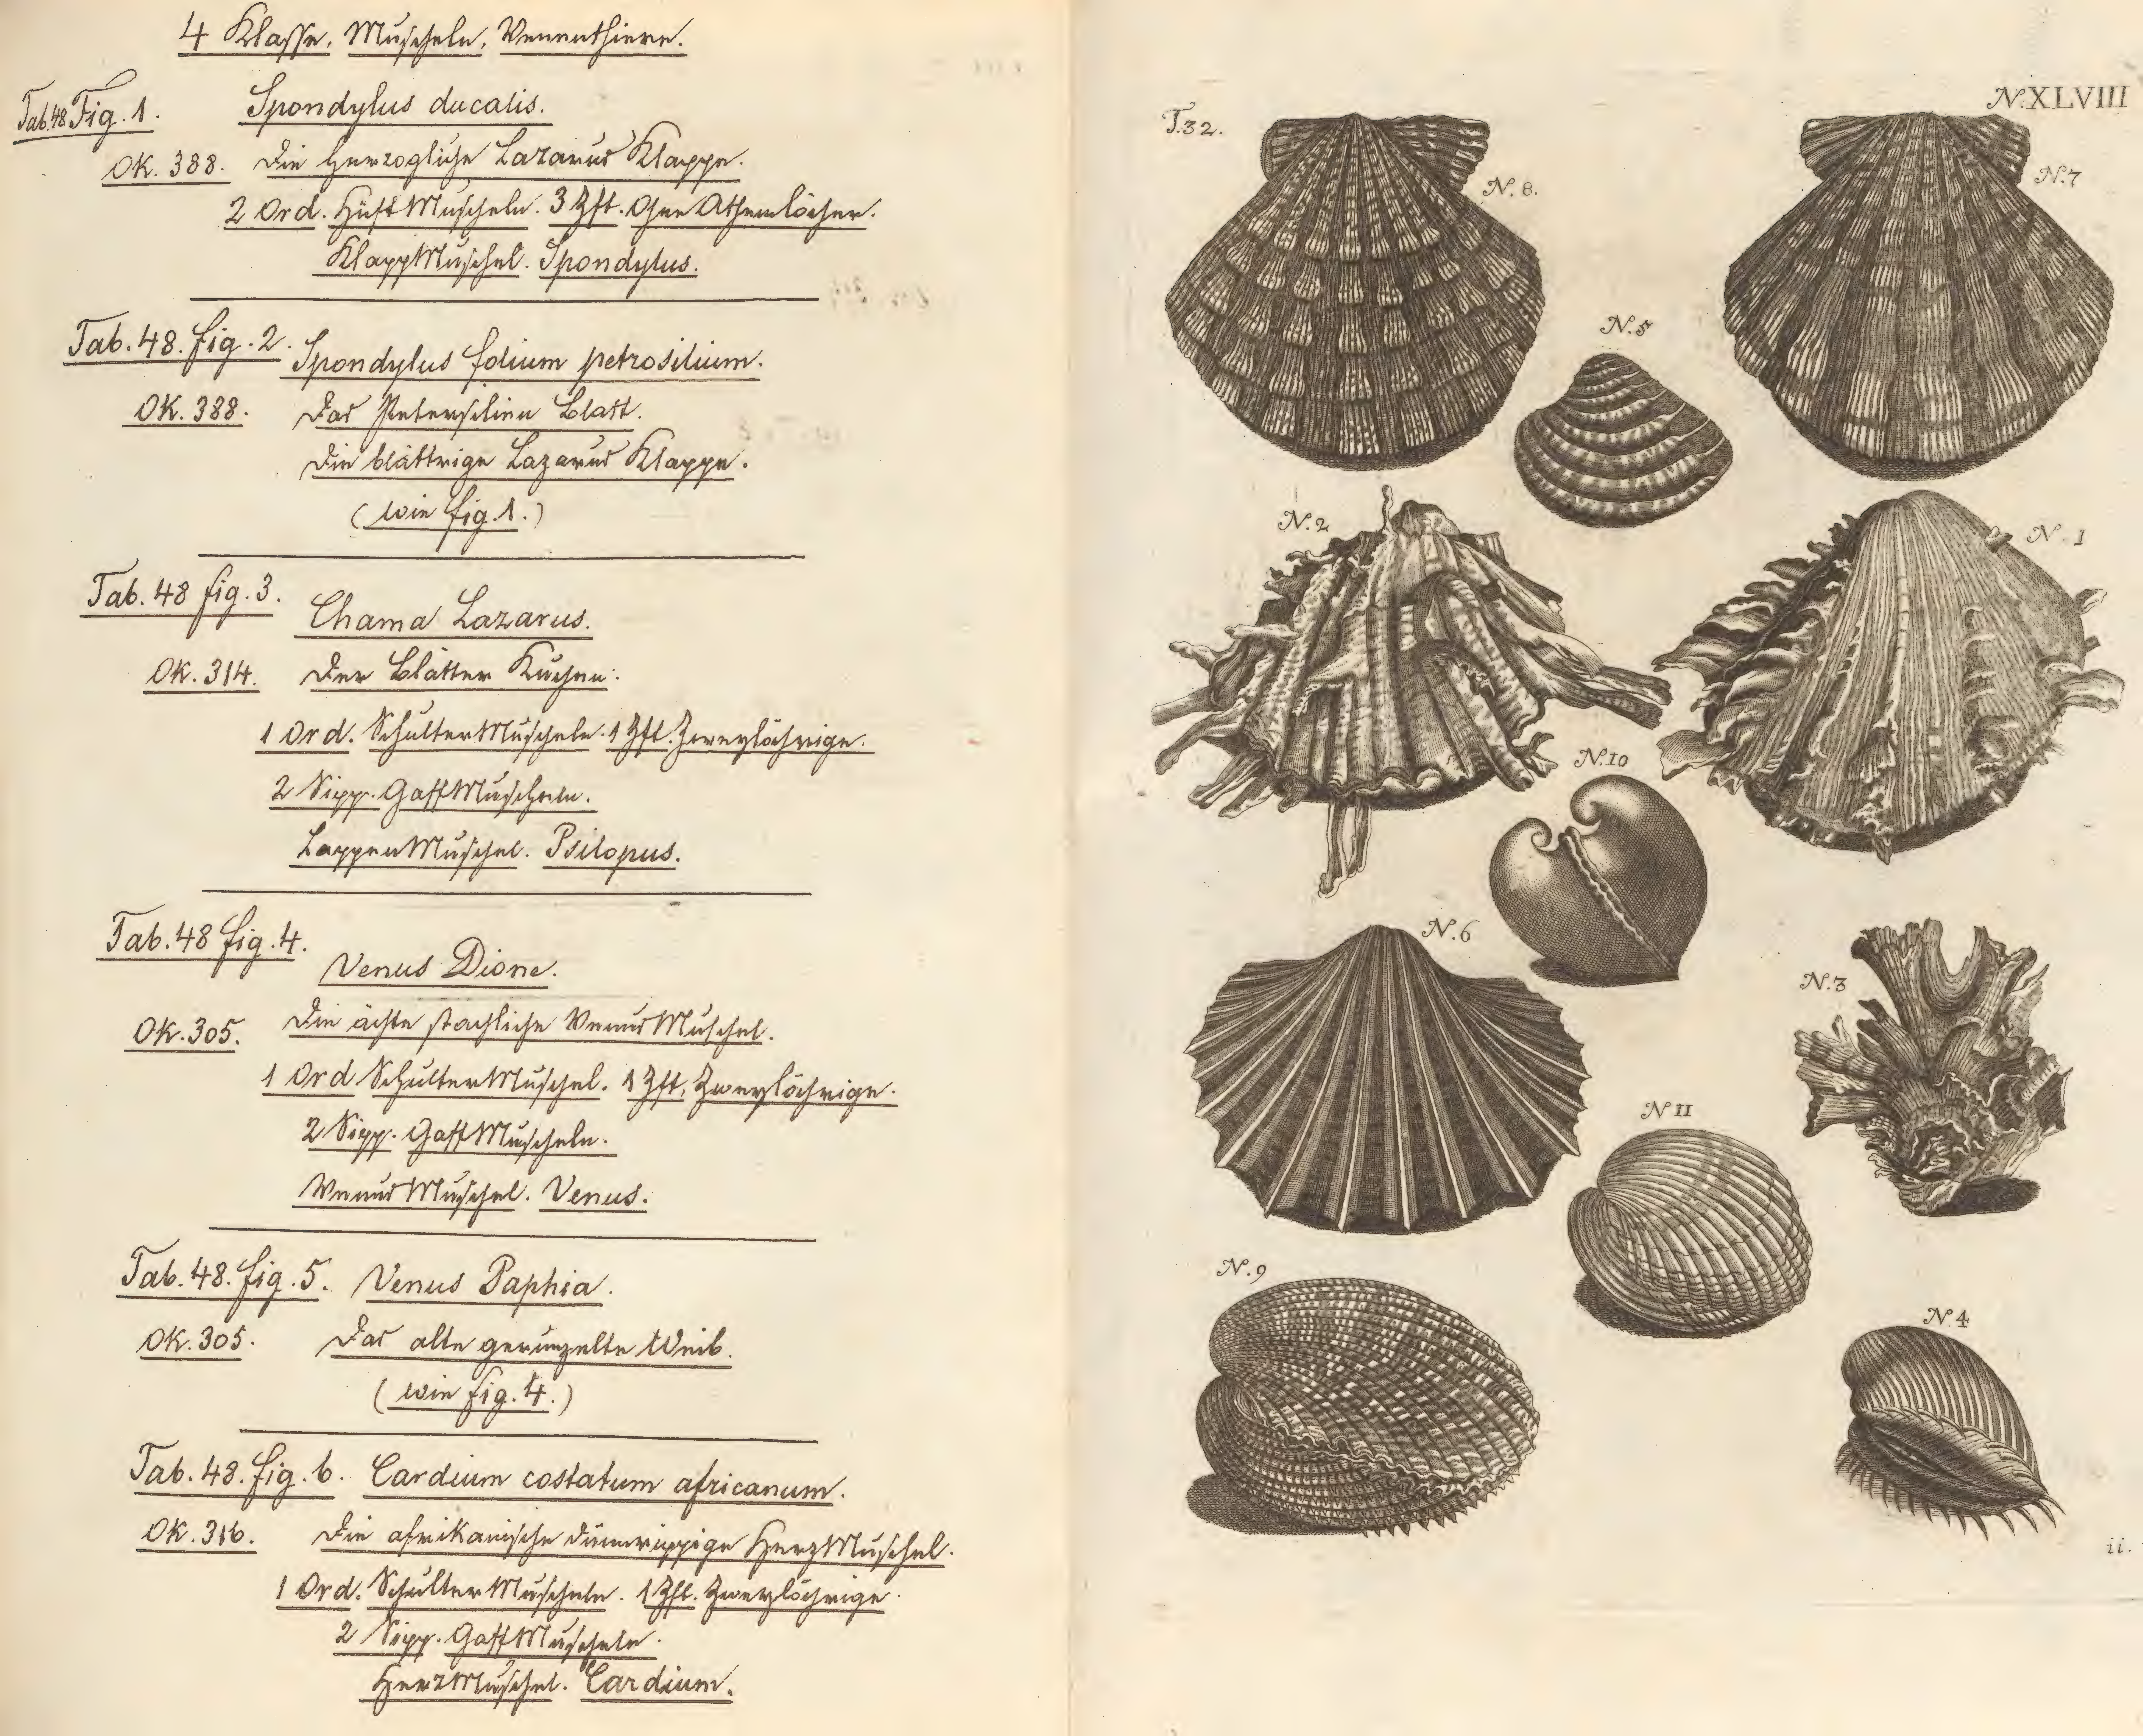 4 Klasse. Muscheln. Venenthiere.
Tab.48 Fig. 1. Spondylus ducalis.
OK. 388. Die Herzogliche Lazarus Klappe.
2 Ord. HüftMuscheln. 3 Zft. Ohne Athemlöcher.
KlappMuschel. Spondylus.
Tab. 48. fig. 2. Spondylus folium petrosilium.
OK. 388. Das Petersilien Blatt.
Die blättrige Lazarus Klappe.
(wie fig. 1.)
Tab. 48 fig. 3. Chama Lazarus.
OK. 314. Der Blätter Kuchen.
1 Ord. SchulterMuscheln. 1 Zft. Zweylöchrige.
2 Sipp. GaffMuscheln.
LappenMuschel. Psilopus.
Tab. 48 fig. 4. Venus Dione.
OK. 305. Die ächte stachliche VenusMuschel.
1 Ord SchulterMuschel. 1 Zft. Zweylöchrige.
2 Sipp. GaffMuscheln.
VenusMuschel. Venus.
Tab. 48. fig. 5. Venus Paphia.
OK. 305. Das alte gerunzelte Weib.
(wie fig. 4.)
Tab. 48. fig. 6. Cardium costatum africanum.
OK. 316. Die afrikanische dünnrippige HerzMuschel.
1 Ord. SchulterMuscheln. 1 Zft. Zweylöchrige.
2 Sipp. GaffMuscheln.
HerzMuschel. Cardium.
N.XLVIII
T.32.
N. 8.
N.7
N.5
N.2
N.1
N.10
N.6
N.3
N 11
N.9
N 4
ii.